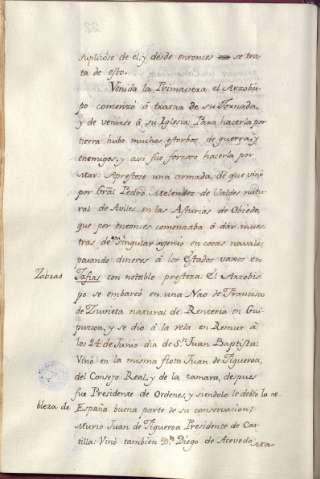 suplicóse de él, y desde entonces se tra-
ta de esto.
Venida la Primavera el Arzobis-
po comenzó á tratar de su Jornada,
y de venirse á su Iglesia: Para hacerla por
tierra hubo muchos estorbos de guerra, y
enemigos, y asi fué forzoso hacerla por
mar. Aprestose una armada, de que vino
por Gral Pedro Melendez de Valdes natu-
ral de Aviles, en las Asturias de Obiedo,
que por entonces comenzaba á dár mues-
tras de singular ingenio en cosas navales;
pasando dineros á los Estados vanos en
Zabras Tafias con notable presteza. El Arzobis-
po se embarcó en una Nao de Francisco
de Zurieta natural de Renteria en Gui-
puzcoa, y se dió á la vela en Remur á
los 24 de Junio dia de Sn Juan Baptista:
Vino en la misma flota Juan de Figueroa,
del Consejo Real, y de la camara, despues
fue Presidente de Ordenes, y siendolo le debio la no-
bleza de España buena parte de su conservacion;
Murio Juan de Figueroa Presidente de Cas-
tilla: Vinó tambien Dn Diego de Acevedo